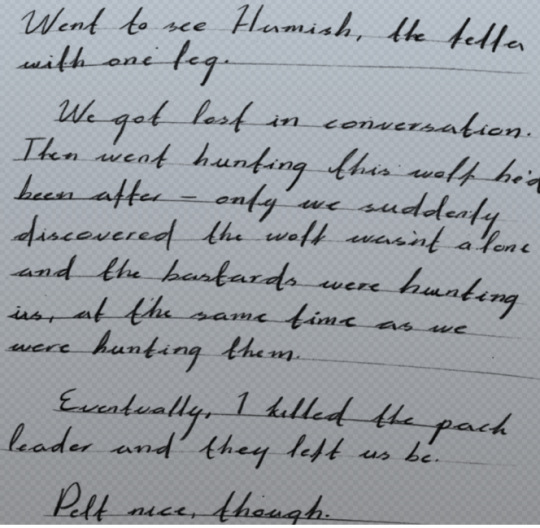 Went to see Hamish, the fella
with one leg.
We got lost in conversation.
Then went hunting this wolf he'd
been after – only we suddenly
discovered the wolf wasn't alone
and the bastards were hunting
us, at the same time as we
were hunting them.
Eventually, I killed the pack
leader and they left us be.
Pelt nice, though.